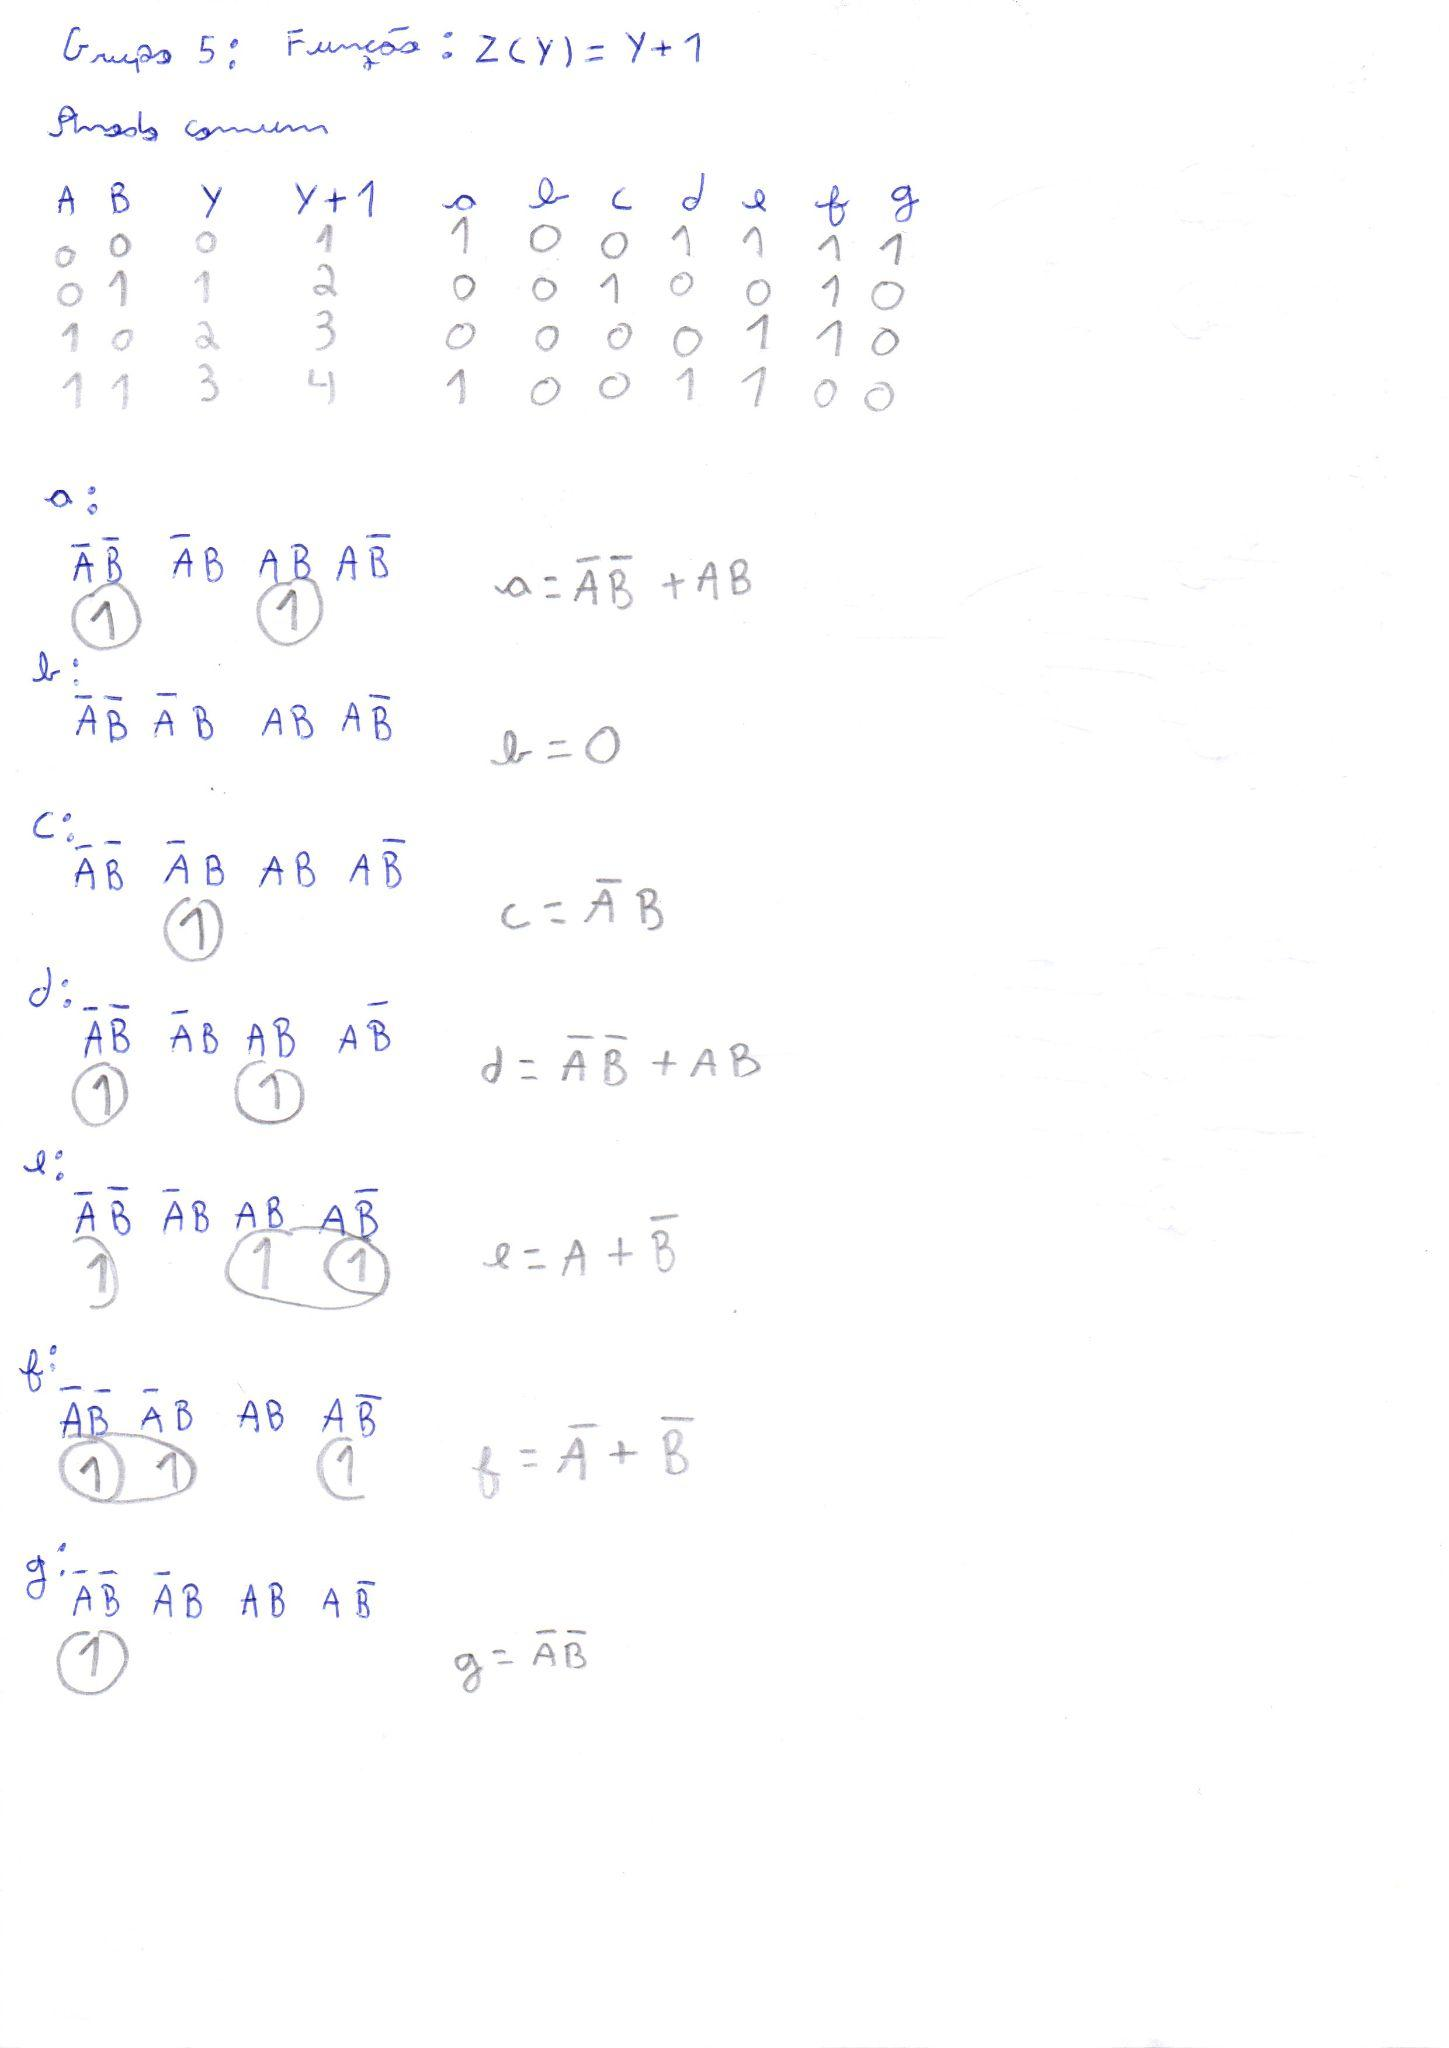 Grupo 5: Função: Z(Y) = Y+1
Anodo comum
A B Y Y+1 a b c d e f g
0 0 0 1 1 0 0 1 1 1 1
0 1 1 2 0 0 1 0 0 1 0
1 0 2 3 0 0 0 0 1 1 0
1 1 3 4 1 0 0 1 1 0 0
a:
A̅B̅ A̅B AB AB̅
1 1
a = A̅B̅ + AB
b:
A̅B̅ A̅B AB AB̅
b = 0
c:
A̅B̅ A̅B AB AB̅
1
c = A̅B
d:
A̅B̅ A̅B AB AB̅
1 1
d = A̅B̅ + AB
e:
A̅B̅ A̅B AB AB̅
1 1 1
e = A + B̅
f:
A̅B̅ A̅B AB AB̅
1 1 1
f = A̅ + B̅
g:
A̅B̅ A̅B AB AB̅
1
g = A̅B̅